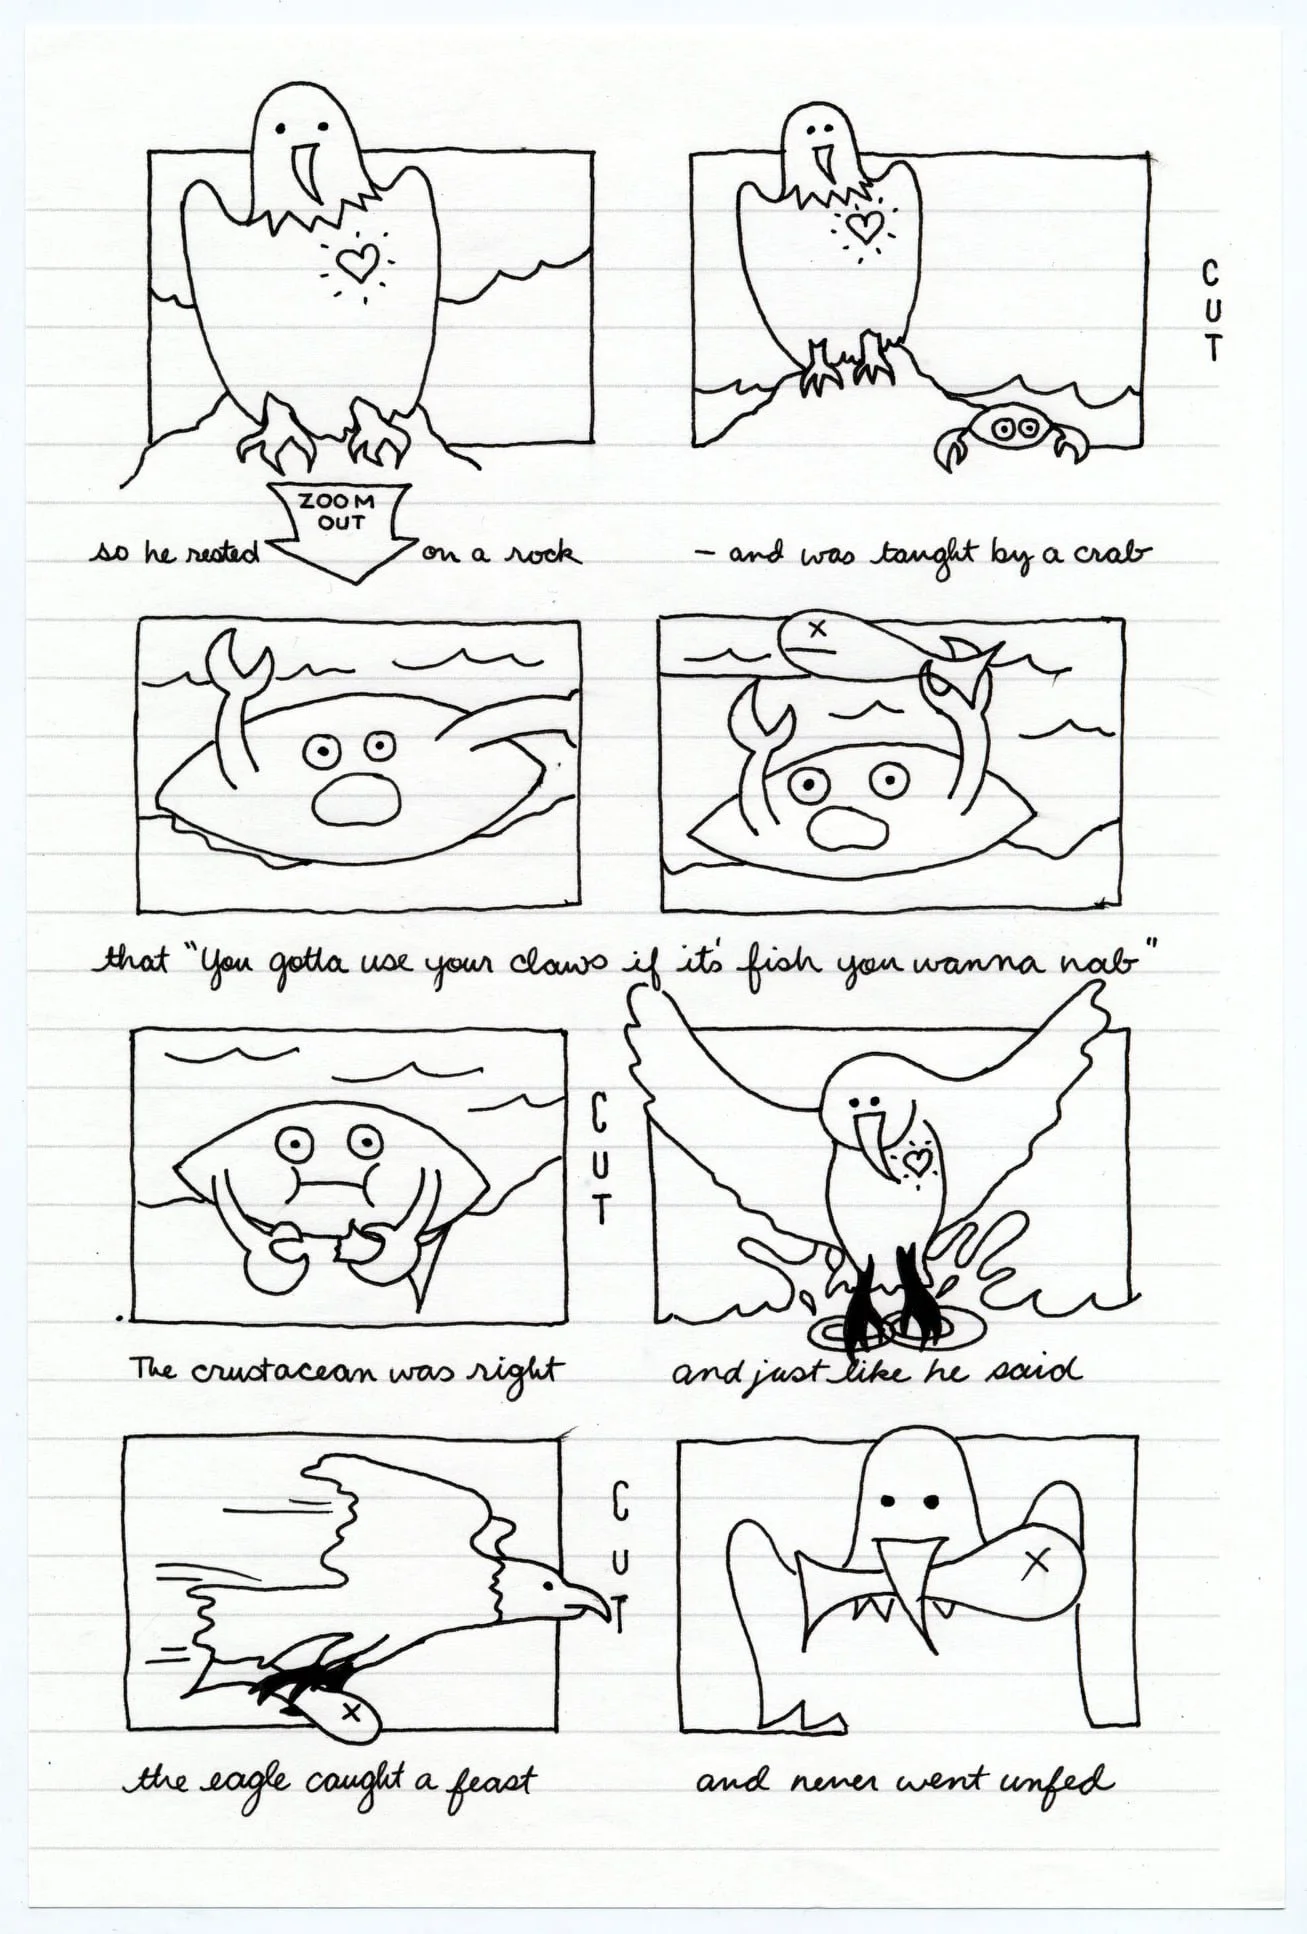 CUT
ZOOM
OUT
so he rested on a rock
- and was taught by a crab
that "You gotta use your claws if it's fish you wanna nab"
CUT
The crustacean was right
and just like he said
CUT
the eagle caught a feast
and never went unfed